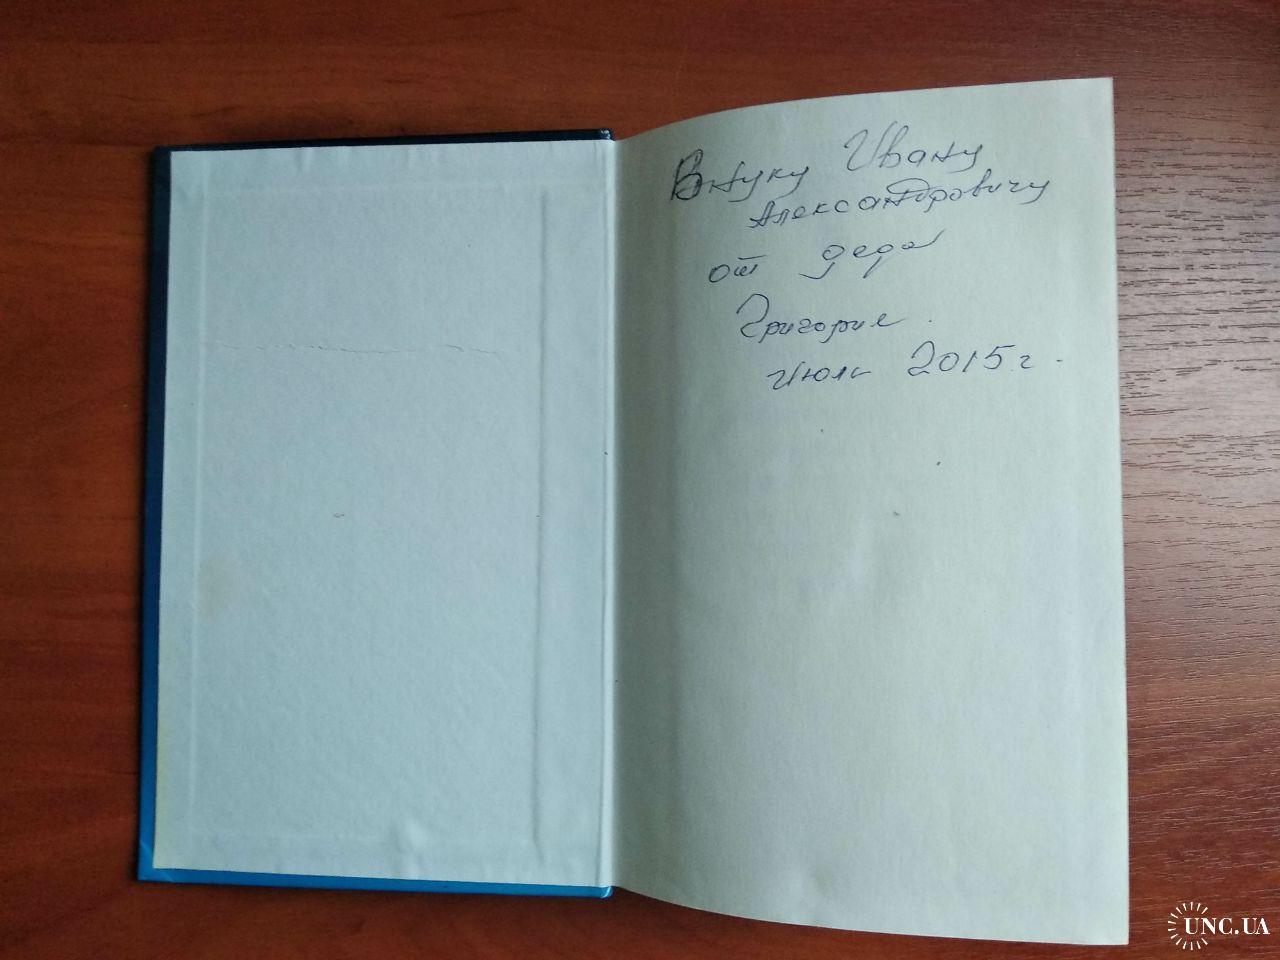 Внуку Ивану
Александровичу
от деда
Григория.
Июль 2015 г.
UNC.UA